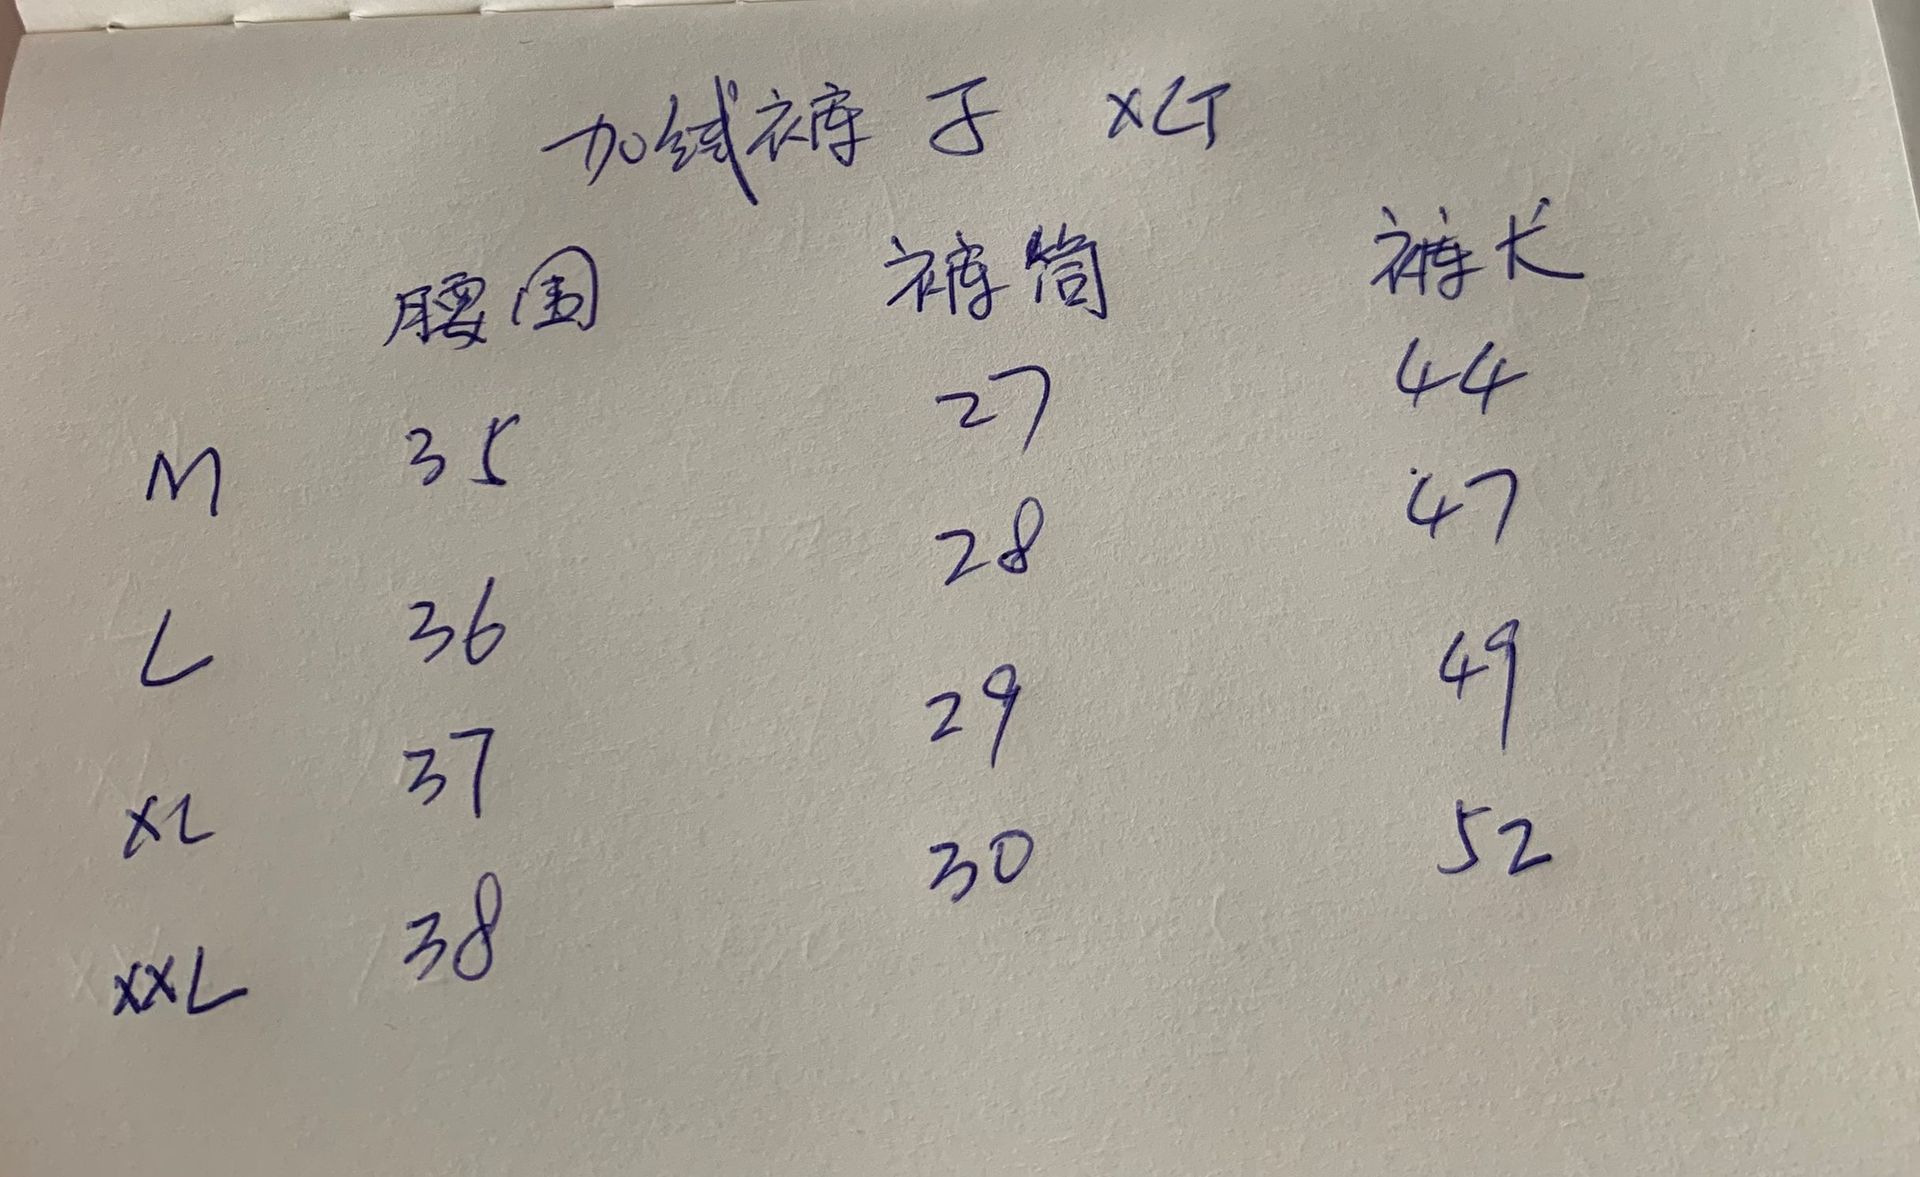 加绒裤子 XLT
腰围 裤筒 裤长
M 35 27 44
L 36 28 47
XL 37 29 49
XXL 38 30 52